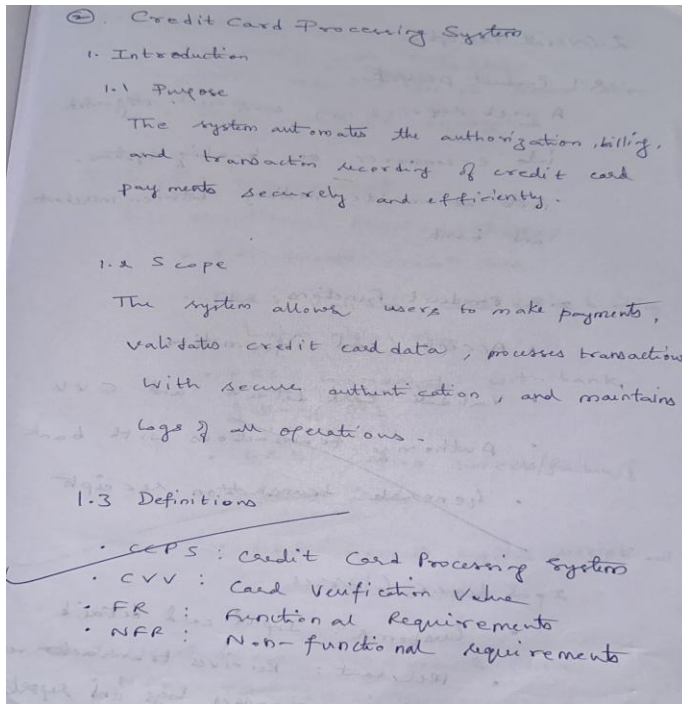 ②. Credit Card Processing System
1. Introduction
1.1 Purpose
The system automates the authorization, billing,
and transaction recording of credit card
payments securely and efficiently.
1.2 Scope
The system allows users to make payments,
validates credit card data, processes transactions
with secure authentication, and maintains
logs of all operations.
1.3 Definitions
• CCPS : Credit Card Processing System
• CVV : Card Verification Value
• FR : Functional Requirements
• NFR : Non-functional requirements